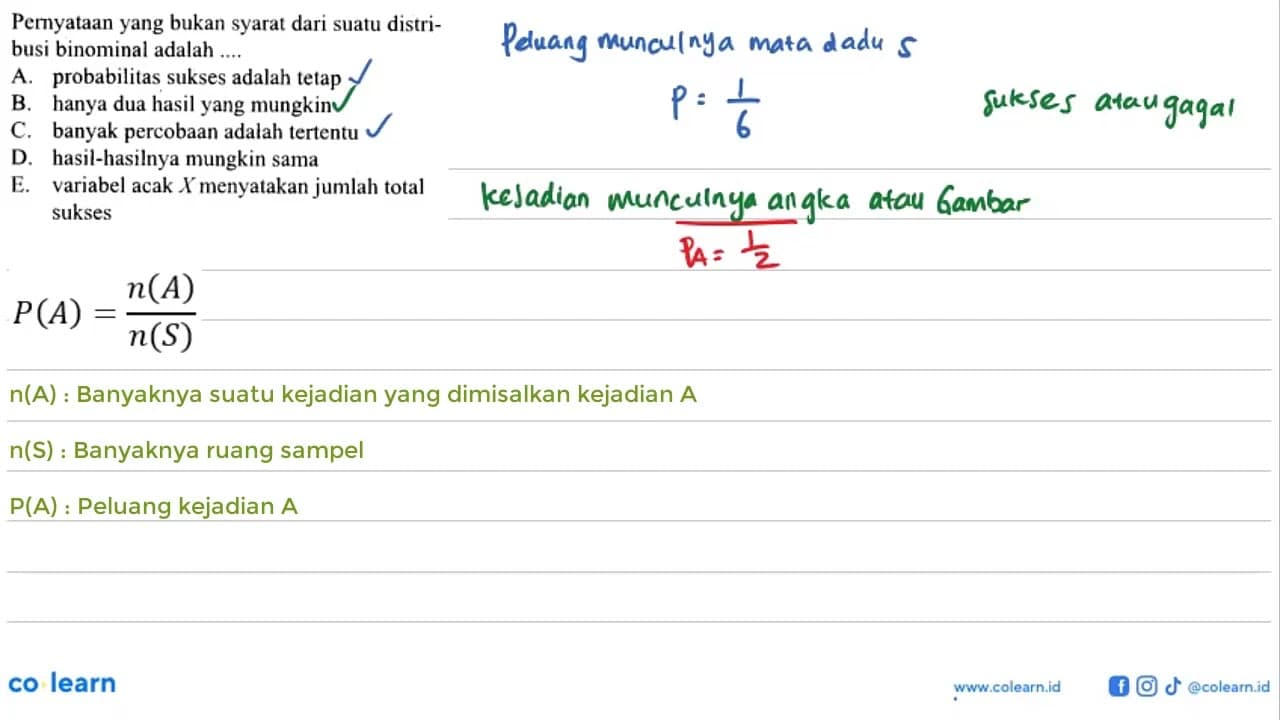 Pernyataan yang bukan syarat dari suatu distri-
busi binominal adalah ....
A. probabilitas sukses adalah tetap ✓
B. hanya dua hasil yang mungkin ✓
C. banyak percobaan adalah tertentu ✓
D. hasil-hasilnya mungkin sama
E. variabel acak X menyatakan jumlah total
sukses
Peluang munculnya mata dadu 5
P = 1/6
sukses atau gagal
kejadian munculnya angka atau Gambar
PA = 1/2
P(A) = n(A)/n(S)
n(A) : Banyaknya suatu kejadian yang dimisalkan kejadian A
n(S) : Banyaknya ruang sampel
P(A) : Peluang kejadian A
co learn
www.colearn.id
@colearn.id